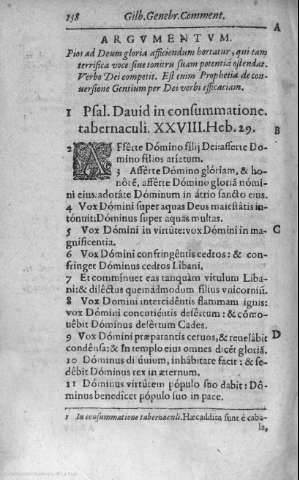 158 Gilb. Genebr. Comment.
A
ARGVMENTVM.
Pios ad Deum gloria afficiendum hortatur, qui tam
terrifica voce siue tonitru suam potentiã ostendat.
Verbo Dei competit. Est enim Prophetia de con-
uersione Gentium per Dei verbi efficaciam.
B
1 Psal. Dauid in consummatione
tabernaculi. XXVIII. Heb. 29.
2 AFférte Dómino filij Dei: afférte Dó-
mino filios aríetum.
3 Afférte Dómino glóriam, & ho-
nórẽ, afférte Dómino gloriã nómi-
ni eius, adoráte Dóminum in átrio sancto eius.
4 Vox Dómini super aquas Deus maiestátis in-
tónuit: Dóminus super aquas multas.
5 Vox Dómini in virtúte: vox Dómini in ma-
gnificentia.
C
6 Vox Dómini confringéntis cedros: & con-
fringet Dóminus cedros Libani.
7 Et commínuet eas tanquàm vitulum Liba-
ni: & diléctus quemádmodum filius vnicorniũ.
8 Vox Domini intercidéntis flammam ignis:
vox Dómini concutiéntis desértum: & cõmo-
uébit Dóminus desértum Cades.
9 Vox Dómini præparantis ceruos, & reuelábit
condénsa: & in templo eius omnes dicẽt gloriã.
10 Dóminus dilúuium, inhábitáre facit: & se-
débit Dóminus rex in æternum.
11 Dóminus virtútem pópulo suo dabit: Dó-
minus benedicet pópulo suo in pace.
D
1 In consummatione tabernaculi. Hæc addita sunt è caba-
la,